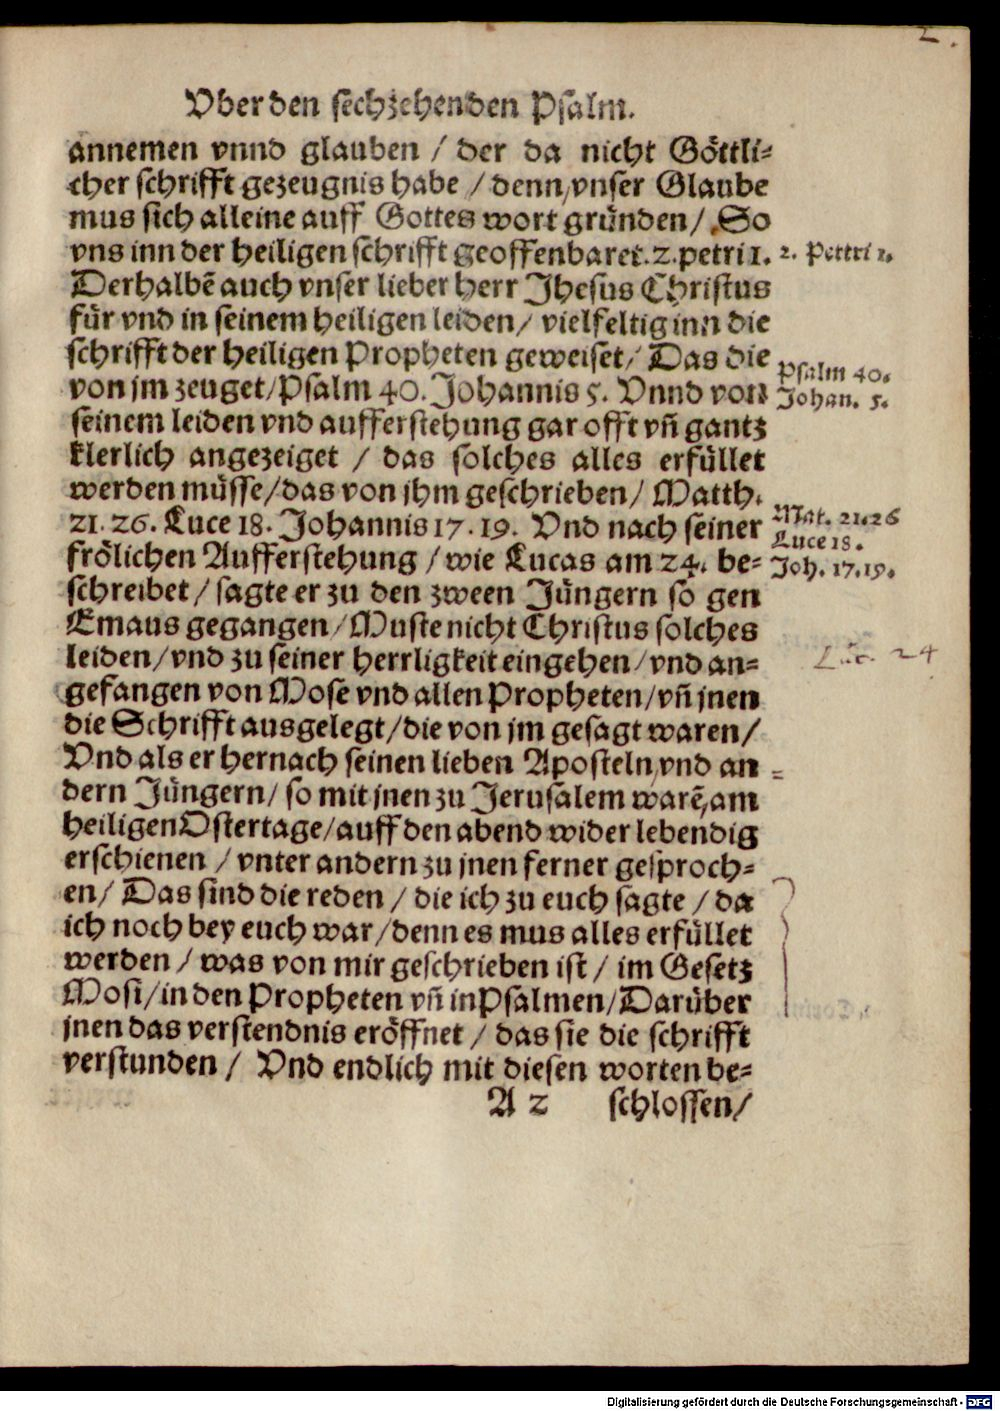 2.
Vber den sechzehenden Psalm.
annemen vnnd glauben / der da nicht Göttli⸗
cher schrifft gezeugnis habe / denn vnser Glaube
mus sich alleine auff Gottes wort gründen / So
vns inn der heiligen schrifft geoffenbaret. 2. petri 1.
2. Pettri 1.
Derhalbẽ auch vnser lieber herr Jhesus Christus
für vnd in seinem heiligen leiden / vielfeltig inn die
schrifft der heiligen Propheten geweiset / Das die
Psalm 40.
von jm zeuget / Psalm 40. Johannis 5. Vnnd von
Johan. 5.
seinem leiden vnd aufferstehung gar offt vñ gantz
klerlich angezeiget / das solches alles erfüllet
werden müsse / das von jhm geschrieben / Matth.
21. 26. Luce 18. Johannis 17. 19. Vnd nach seiner
Mat. 21. 26
Luce 18.
frölichen Aufferstehung / wie Lucas am 24. be⸗
Joh. 17. 19.
schreibet / sagte er zu den zween Jüngern so gen
Emaus gegangen / Muste nicht Christus solches
leiden / vnd zu seiner herrligkeit eingehen / vnd an⸗
Luc. 24
gefangen von Mose vnd allen Propheten / vñ jnen
die Schrifft ausgelegt / die von jm gesagt waren /
Vnd als er hernach seinen lieben Aposteln / vnd an⸗
dern Jüngern / so mit jnen zu Jerusalem warẽ, am
heiligen Ostertage / auff den abend wider lebendig
erschienen / vnter andern zu jnen ferner gesproch⸗
en / Das sind die reden / die ich zu euch sagte / da
ich noch bey euch war / denn es mus alles erfüllet
werden / was von mir geschrieben ist / im Gesetz
Mosi / in den Propheten vñ in Psalmen / Darüber
jnen das verstendnis eröffnet / das sie die schrifft
verstunden / Vnd endlich mit diesen worten be⸗
A 2 schlossen /
Digitalisierung gefördert durch die Deutsche Forschungsgemeinschaft - DFG